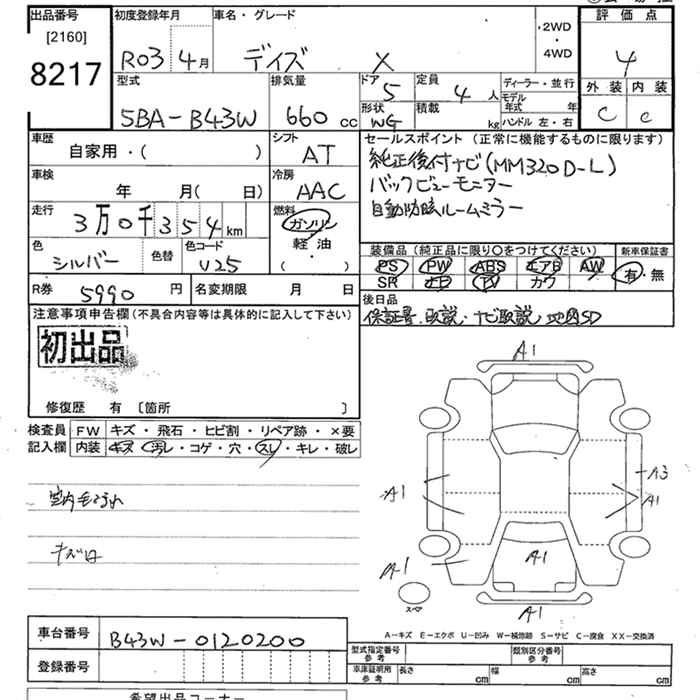 出品番号 初度登録年月 車名・グレード 評価点
[2160] 2WD
8217 R03 4月 デイズ X 4WD 4
型式 排気量 ドア 定員 ディーラー・並行 外装 内装
5BA-B43W 660 cc 5 4人 モデル年式 年 C C
形状 積載 ハンドル 左・右
WG kg
車歴 シフト セールスポイント(正常に機能するものに限ります)
自家用・( ) AT 純正後付ナビ(MM320D-L)
車検 冷房 バックビューモニター
年 月( 日) AAC 自動防眩ルームミラー
走行 燃料
3万0千354km ガソリン
軽油
( ・ )
色 色替 色コード 装備品(純正品に限り○をつけてください) 新車保証書
シルバー V25 PS PW ABS エアB AW 有・無
SR ナビ TV カワ
R券 5990円 名変期限 月 日 後日品
保証書・取説・ナビ取説・地図SD
注意事項申告欄(不具合内容等は具体的に記入して下さい)
初出品
修復歴 有 [箇所 ]
検査員 FW キズ・飛石・ヒビ割・リペア跡・×要
記入欄 内装 キズ・汚レ・コゲ・穴・スレ・キレ・破レ
A1
A1 A3
A1
室内
キズ
A1 A1
スペア
A1
A-キズ E-エクボ U-凹み W-補修跡 S-サビ C-腐食 XX-交換済
車台番号 B43W-0120200
型式指定番号 類別区分番号
参考 参考
登録番号 車庫証明用 長さ 幅 高さ
参考 cm cm cm
希望出品コーナー